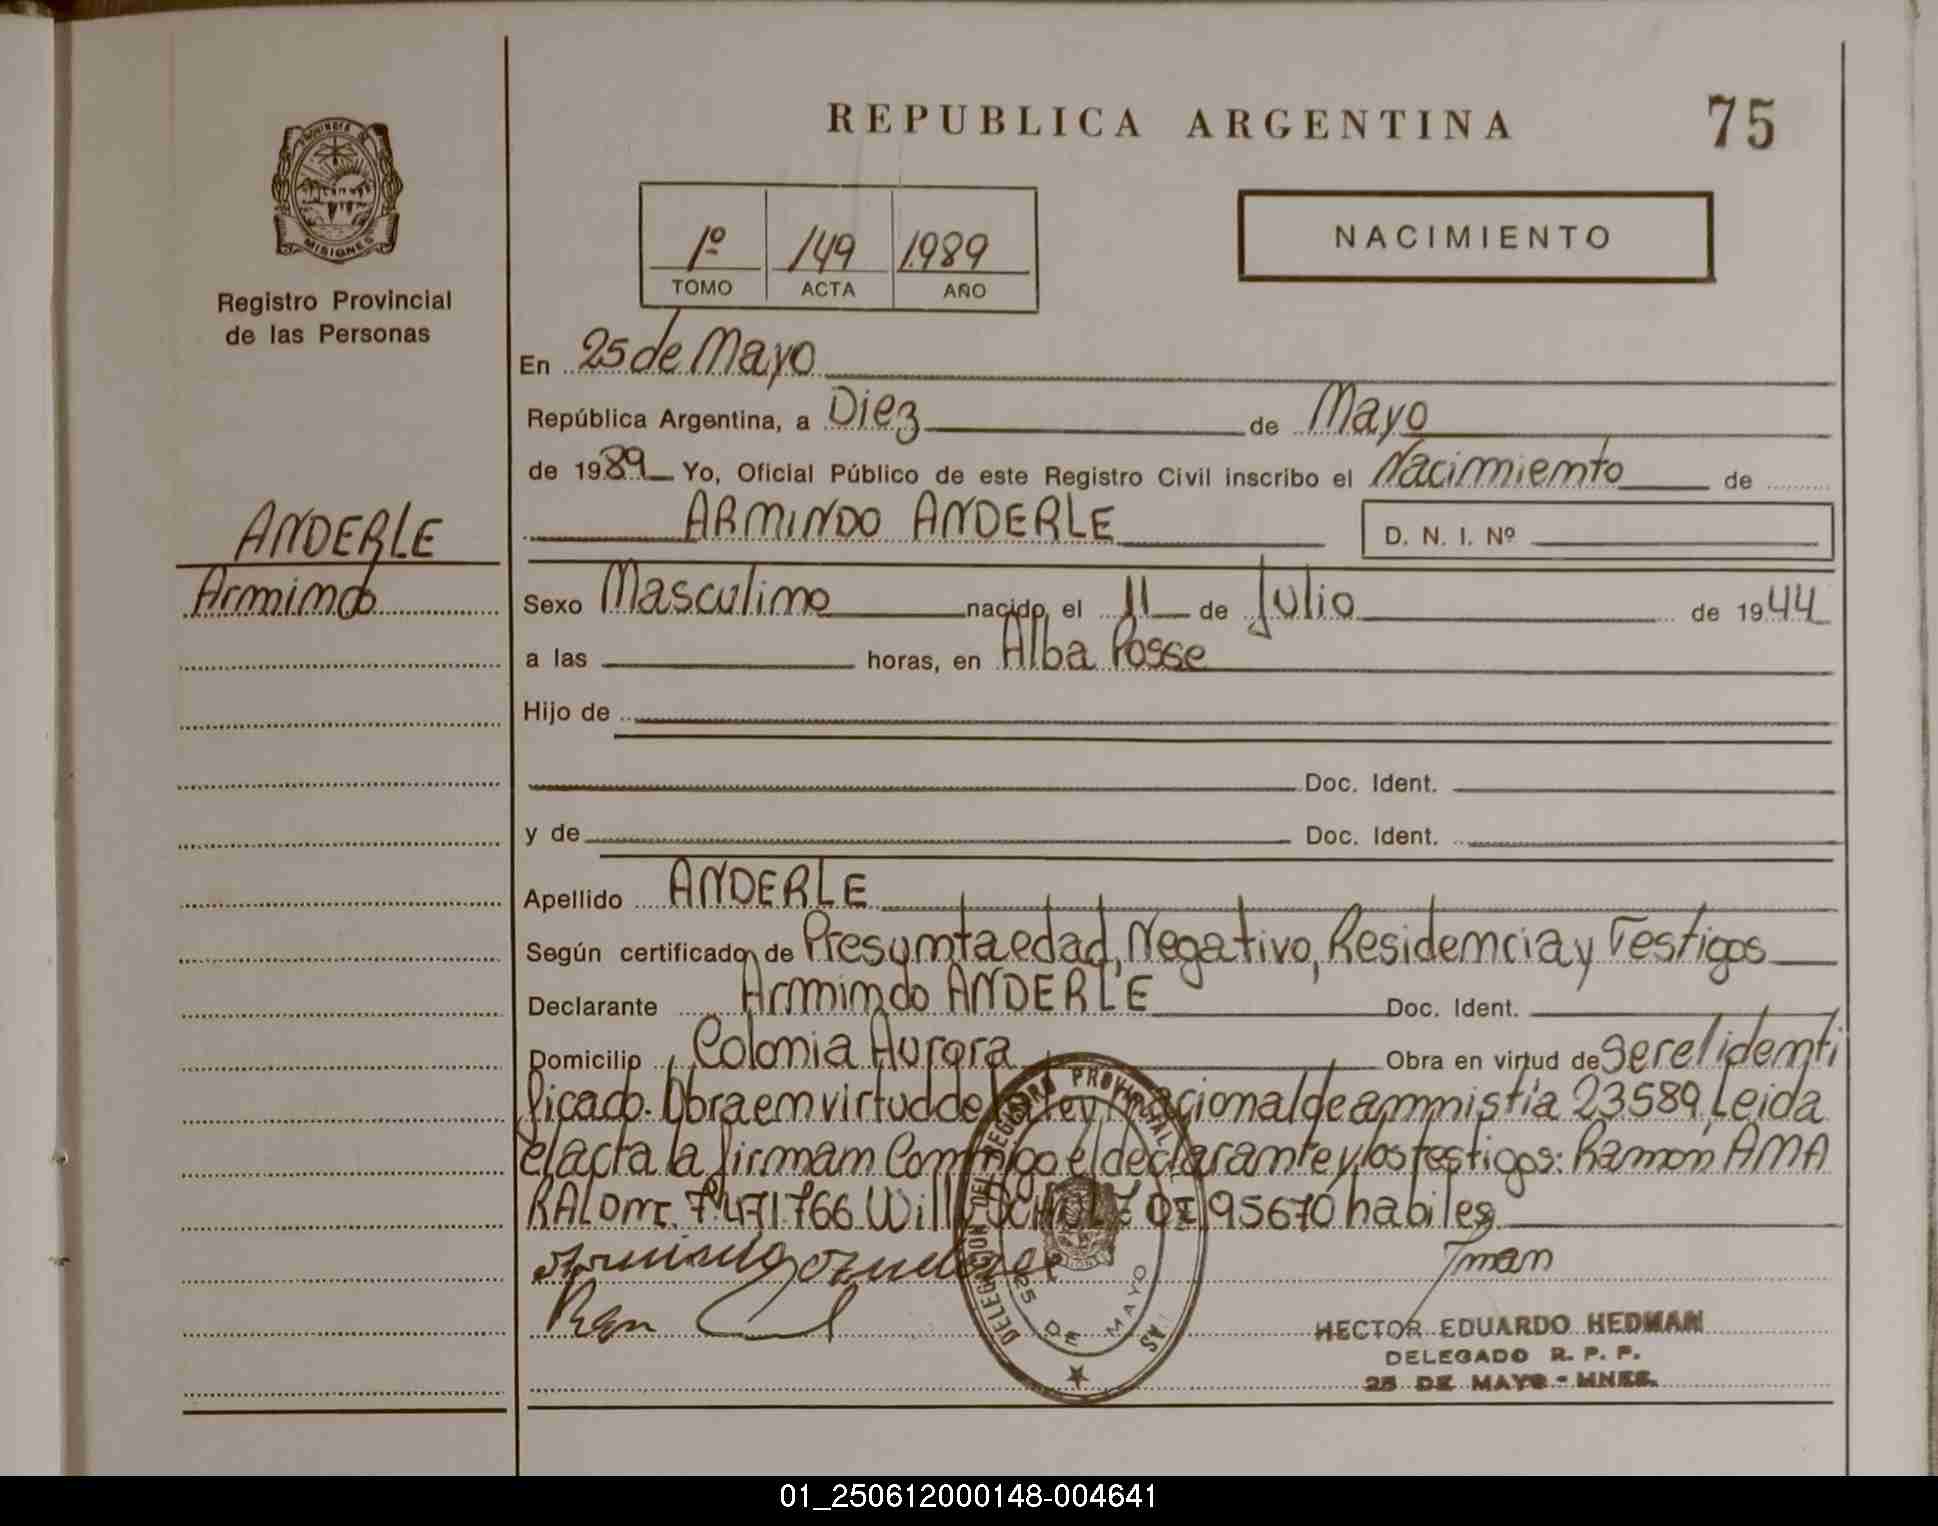 REPUBLICA ARGENTINA 75
PROVINCIA DE MISIONES
Registro Provincial
de las Personas
1º 149 1.989
TOMO ACTA AÑO
NACIMIENTO
En 25 de Mayo
República Argentina, a Diez de Mayo
de 1989 Yo, Oficial Público de este Registro Civil inscribo el Nacimiento de
ANDERLE
Armindo
ARMINDO ANDERLE D. N. I. Nº
Sexo Masculino nacido el 11 de Julio de 1944
a las horas, en Alba Posse
Hijo de
Doc. Ident.
y de Doc. Ident.
Apellido ANDERLE
Según certificado de Presunta edad, Negativo, Residencia y Testigos
Declarante Armindo ANDERLE Doc. Ident.
Domicilio Colonia Aurora Obra en virtud de ser el identi
ficado. Obra en virtud de la ley nacional de amnistía 23589, Leida
el acta la firman conmigo el declarante y los testigos: Ramón AMA
RAL DNI. 7.471.766 Willy SCHULZ DI 95670 habiles
HECTOR EDUARDO HEDMAN
DELEGADO R. P. P.
25 DE MAYO - MNES.
DELEGACION DEL REGISTRO PROVINCIAL
25 DE MAYO
01_250612000148-004641